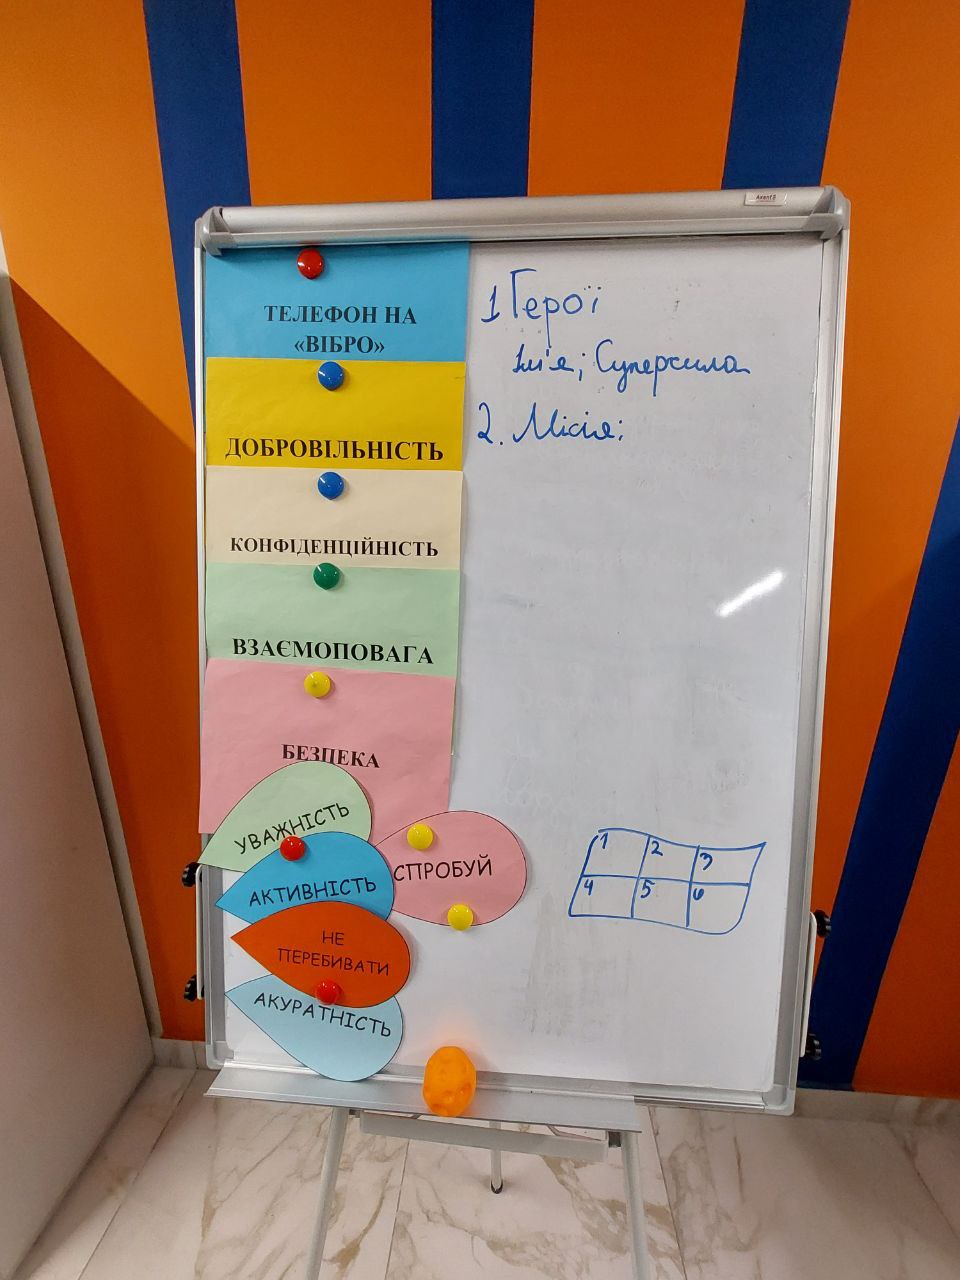 Axent
ТЕЛЕФОН НА
«ВІБРО»
ДОБРОВІЛЬНІСТЬ
КОНФІДЕНЦІЙНІСТЬ
ВЗАЄМОПОВАГА
БЕЗПЕКА
УВАЖНІСТЬ
АКТИВНІСТЬ
СПРОБУЙ
НЕ
ПЕРЕБИВАТИ
АКУРАТНІСТЬ
1 Герої
Ім'я; Суперсила
2. Місія:
1 2 3
4 5 6